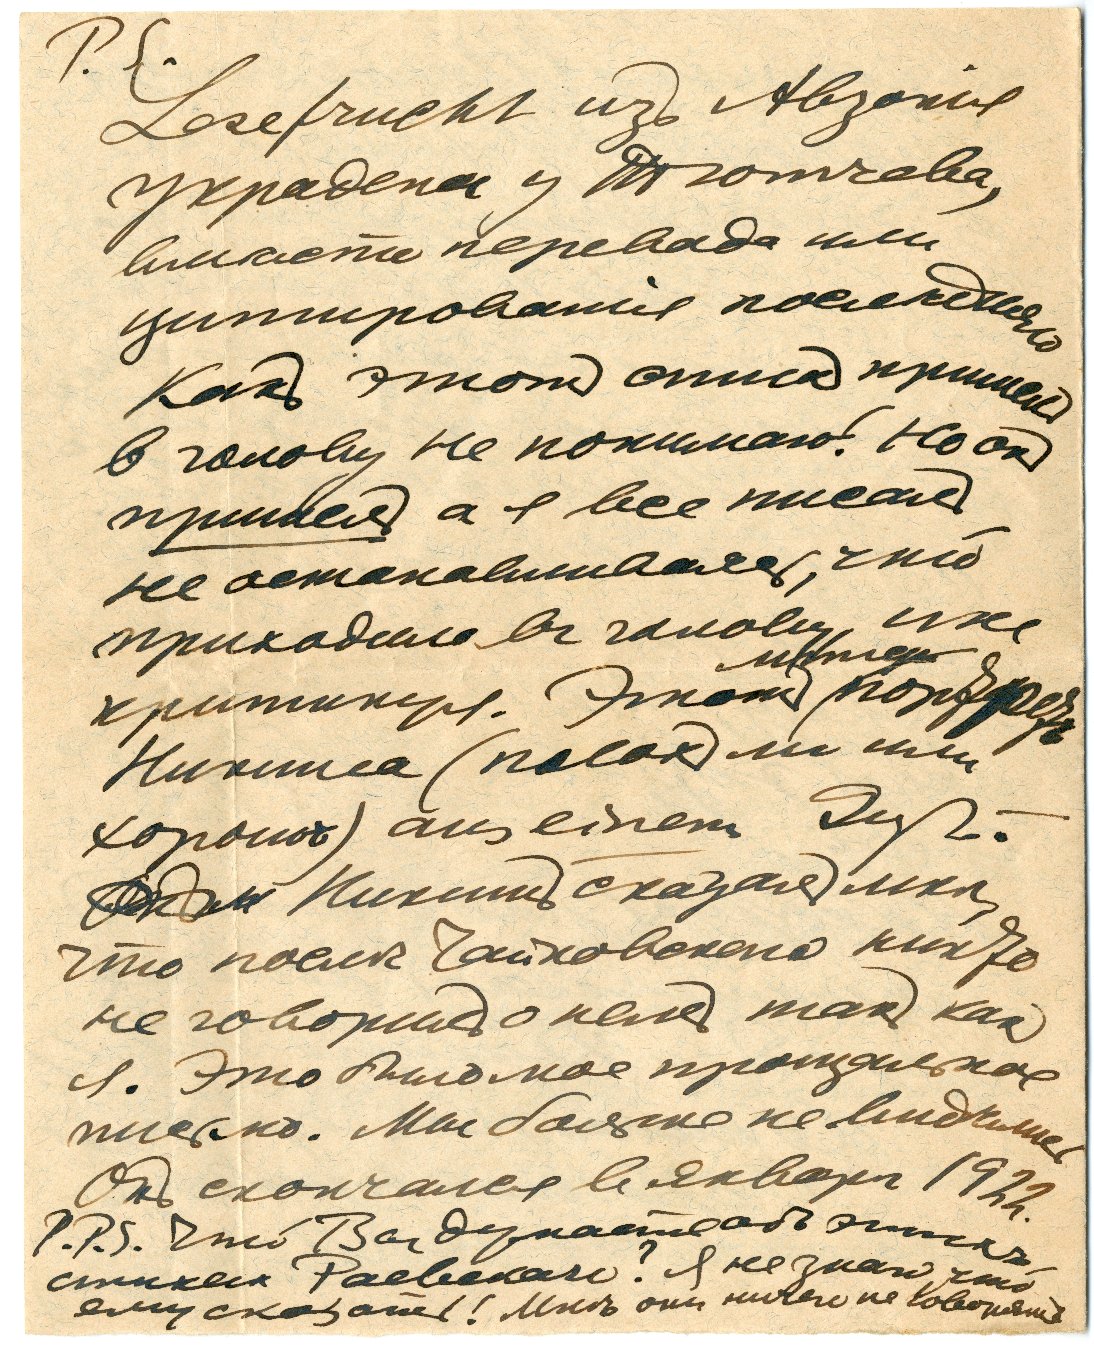 P. S.
Lesefrucht изъ Авзонiя
украдена у Тютчева,
вместо перевода или
цитированiя последняго
Какъ этотъ стихъ пришелъ
в голову не понимаю! Но онъ
пришелъ а я все писалъ
не останавливаясь, что
приходило въ голову, и не
критикуя. Этотъ портретъ
Никиша (плохъ ли или
хорошъ) aus einem Zug.—
Никишъ сказалъ мнѣ,
что послѣ Чайковскаго никто
не говорилъ о немъ такъ какъ
я. Это было мое прощальное
письмо. Мы больше не видѣлись
Онъ скончался въ январѣ 1922.
P.P.S. Что Вы думаете объ этихъ
стихахъ Раевскаго? Я не знаю что
ему сказать! Мнѣ они ничего не говорятъ